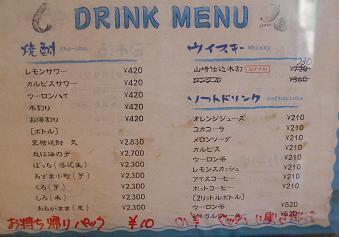 DRINK MENU
焼酎 Sho-chu
レモンサワー ¥420
カルピスサワー ¥420
ウーロンハイ ¥420
水割り ¥420
お湯割り ¥420
[ボトル]
黒糖焼酎 気 ¥2,830
我は海の子 ¥2,700
ぱっち(落花生) ¥2,300
あずま小町(芋) ¥2,300
くろ(芋) ¥2,300
しろ(米) ¥2,300
¥2,300
お持ち帰りパック ¥10
ウイスキー Whisky
山崎仕込水割 ¥730
シングル ¥360
ソフトドリンク Softdrinks
オレンジジュース ¥210
コカコーラ ¥210
メロンソーダ ¥210
カルピス ¥210
ウーロン茶 ¥210
レモンスカッシュ ¥210
アイスコーヒー ¥210
ホットコーヒー ¥210
[2リットルボトル]
ウーロン茶 ¥520
¥520